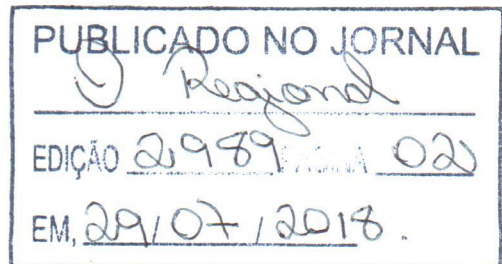 PUBLICADO NO JORNAL
O Regional
EDIÇÃO 2989 PÁGINA 02
EM, 29/07/2018.